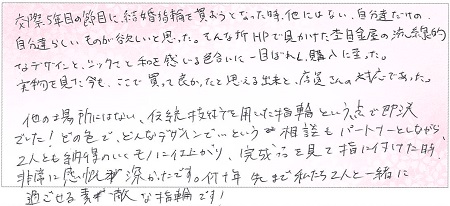 交際5年目の節目に、結婚指輪を買おうとなった時、他にはない、自分達だけの
自分達らしいものが欲しいと思った。そんな折HPで見かけた杢目金屋の流線的
なデザインと、シックで和を感じる色合いに一目ぼれし、購入に至った。
実物を見た今も、ここで買って良かったと思える出来と、店員さんの対応であった。
他の場所にはない、伝統技術を用いた指輪という点で即決
でした!どの色で、どんなデザインで…という相談もパートナーとしながら、
2人とも納得のいくモノに仕上がり、完成品を見て指に付けた時、
非常に感慨深かったです。何十年先まで私たち2人と一緒に
過ごせる素敵な指輪です!